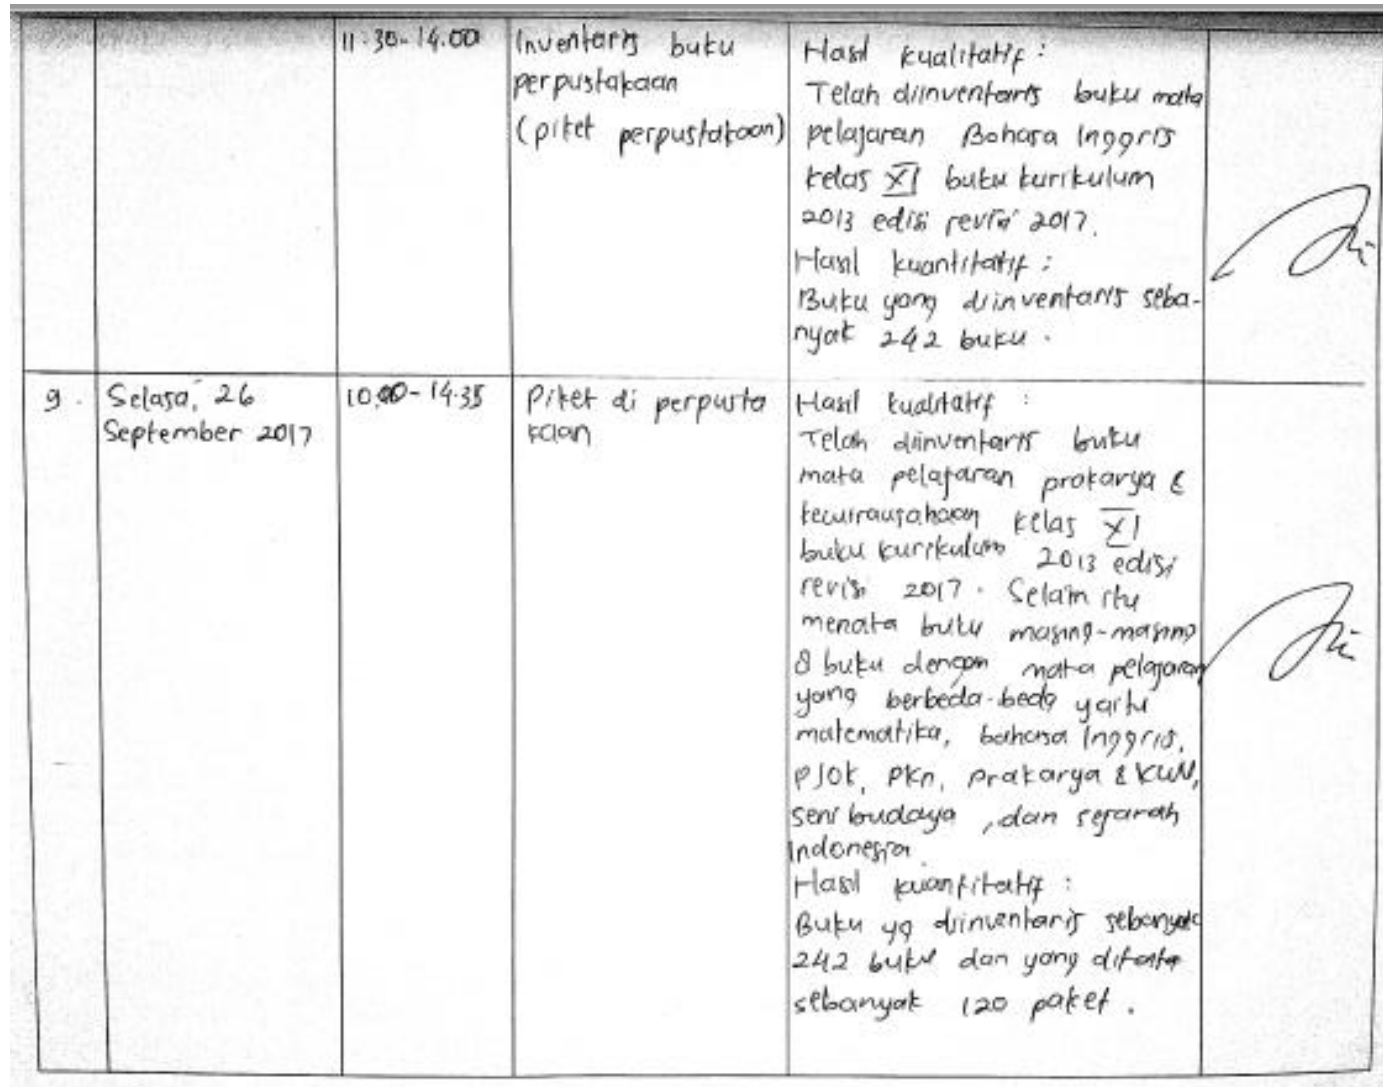 11:30-14.00
Inventaris buku
perpustakaan
(piket perpustakaan)
Hasil kualitatif :
Telah diinventaris buku mata
pelajaran Bahasa Inggris
kelas XI buku kurikulum
2013 edisi revisi 2017.
Hasil kuantitatif :
Buku yang diinventaris seba-
nyak 242 buku.
9.
Selasa, 26
September 2017
10.00-14.35
Piket di perpusta
kaan
Hasil kualitatif :
Telah diinventaris buku
mata pelajaran prakarya &
kewirausahaan kelas XI
buku kurikulum 2013 edisi
revisi 2017. Selain itu
menata buku masing-masing
8 buku dengan mata pelajaran
yang berbeda-beda yaitu
matematika, bahasa Inggris,
PJOK, PKn, prakarya & KWU,
seni budaya, dan sejarah
Indonesia.
Hasil kuantitatif :
Buku yg diinventaris sebanyak
242 buku dan yang ditata
sebanyak 120 paket.